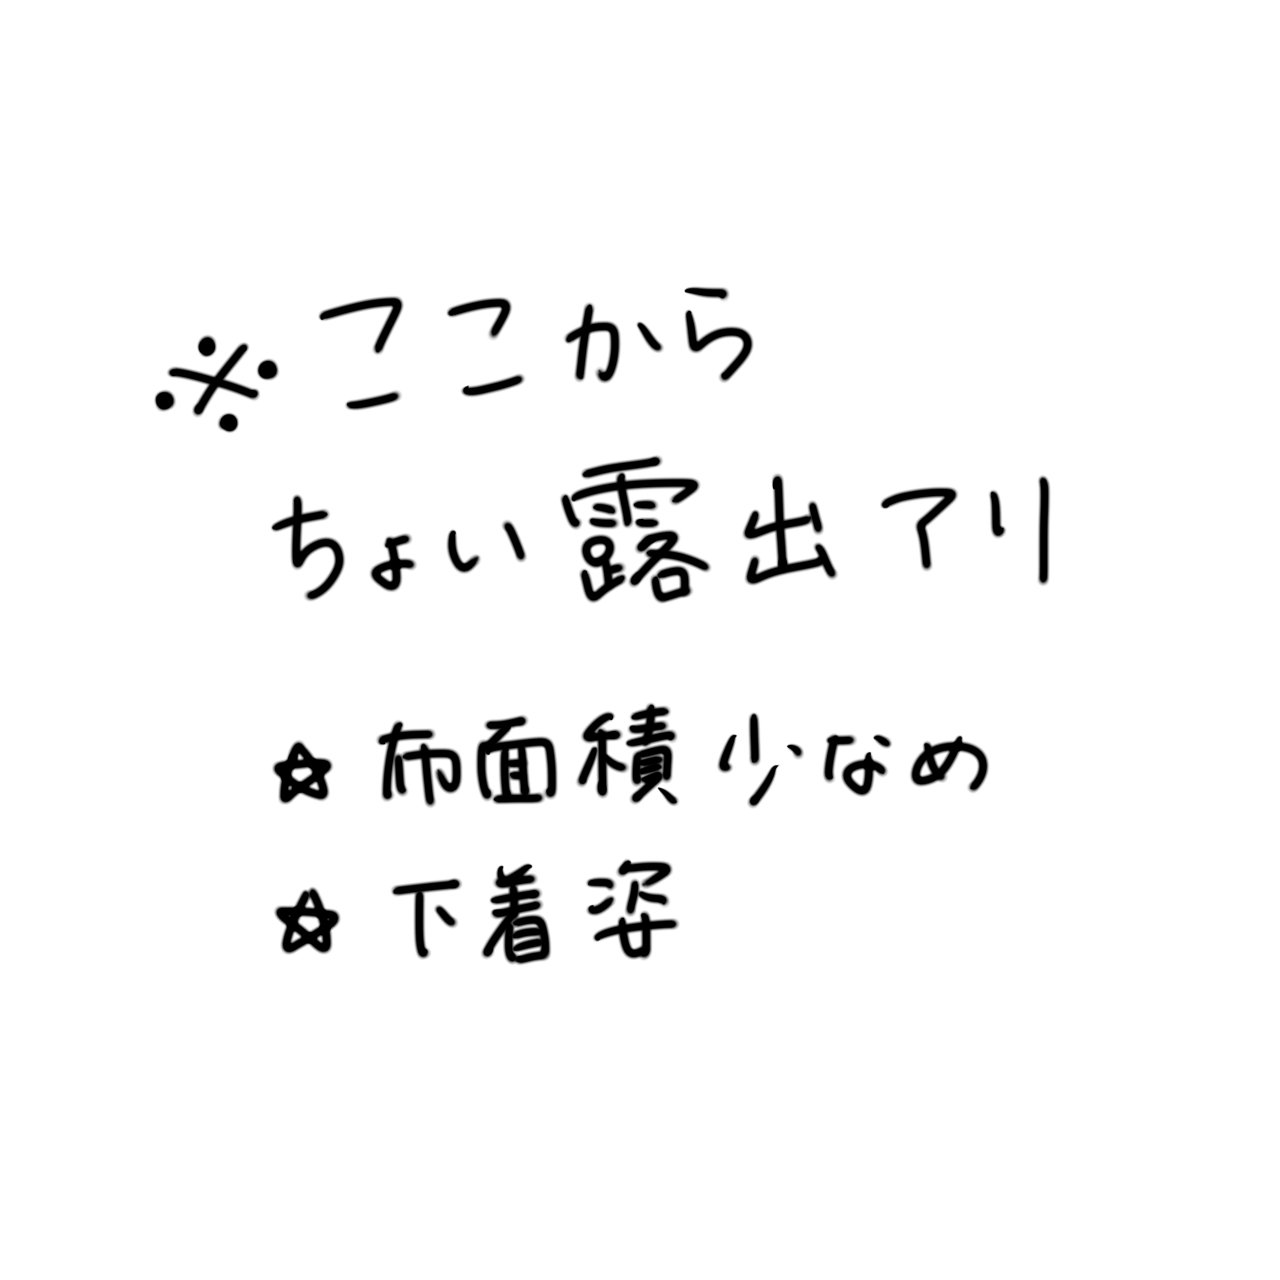 ※ここから
ちょい露出アリ
☆布面積少なめ
☆下着姿